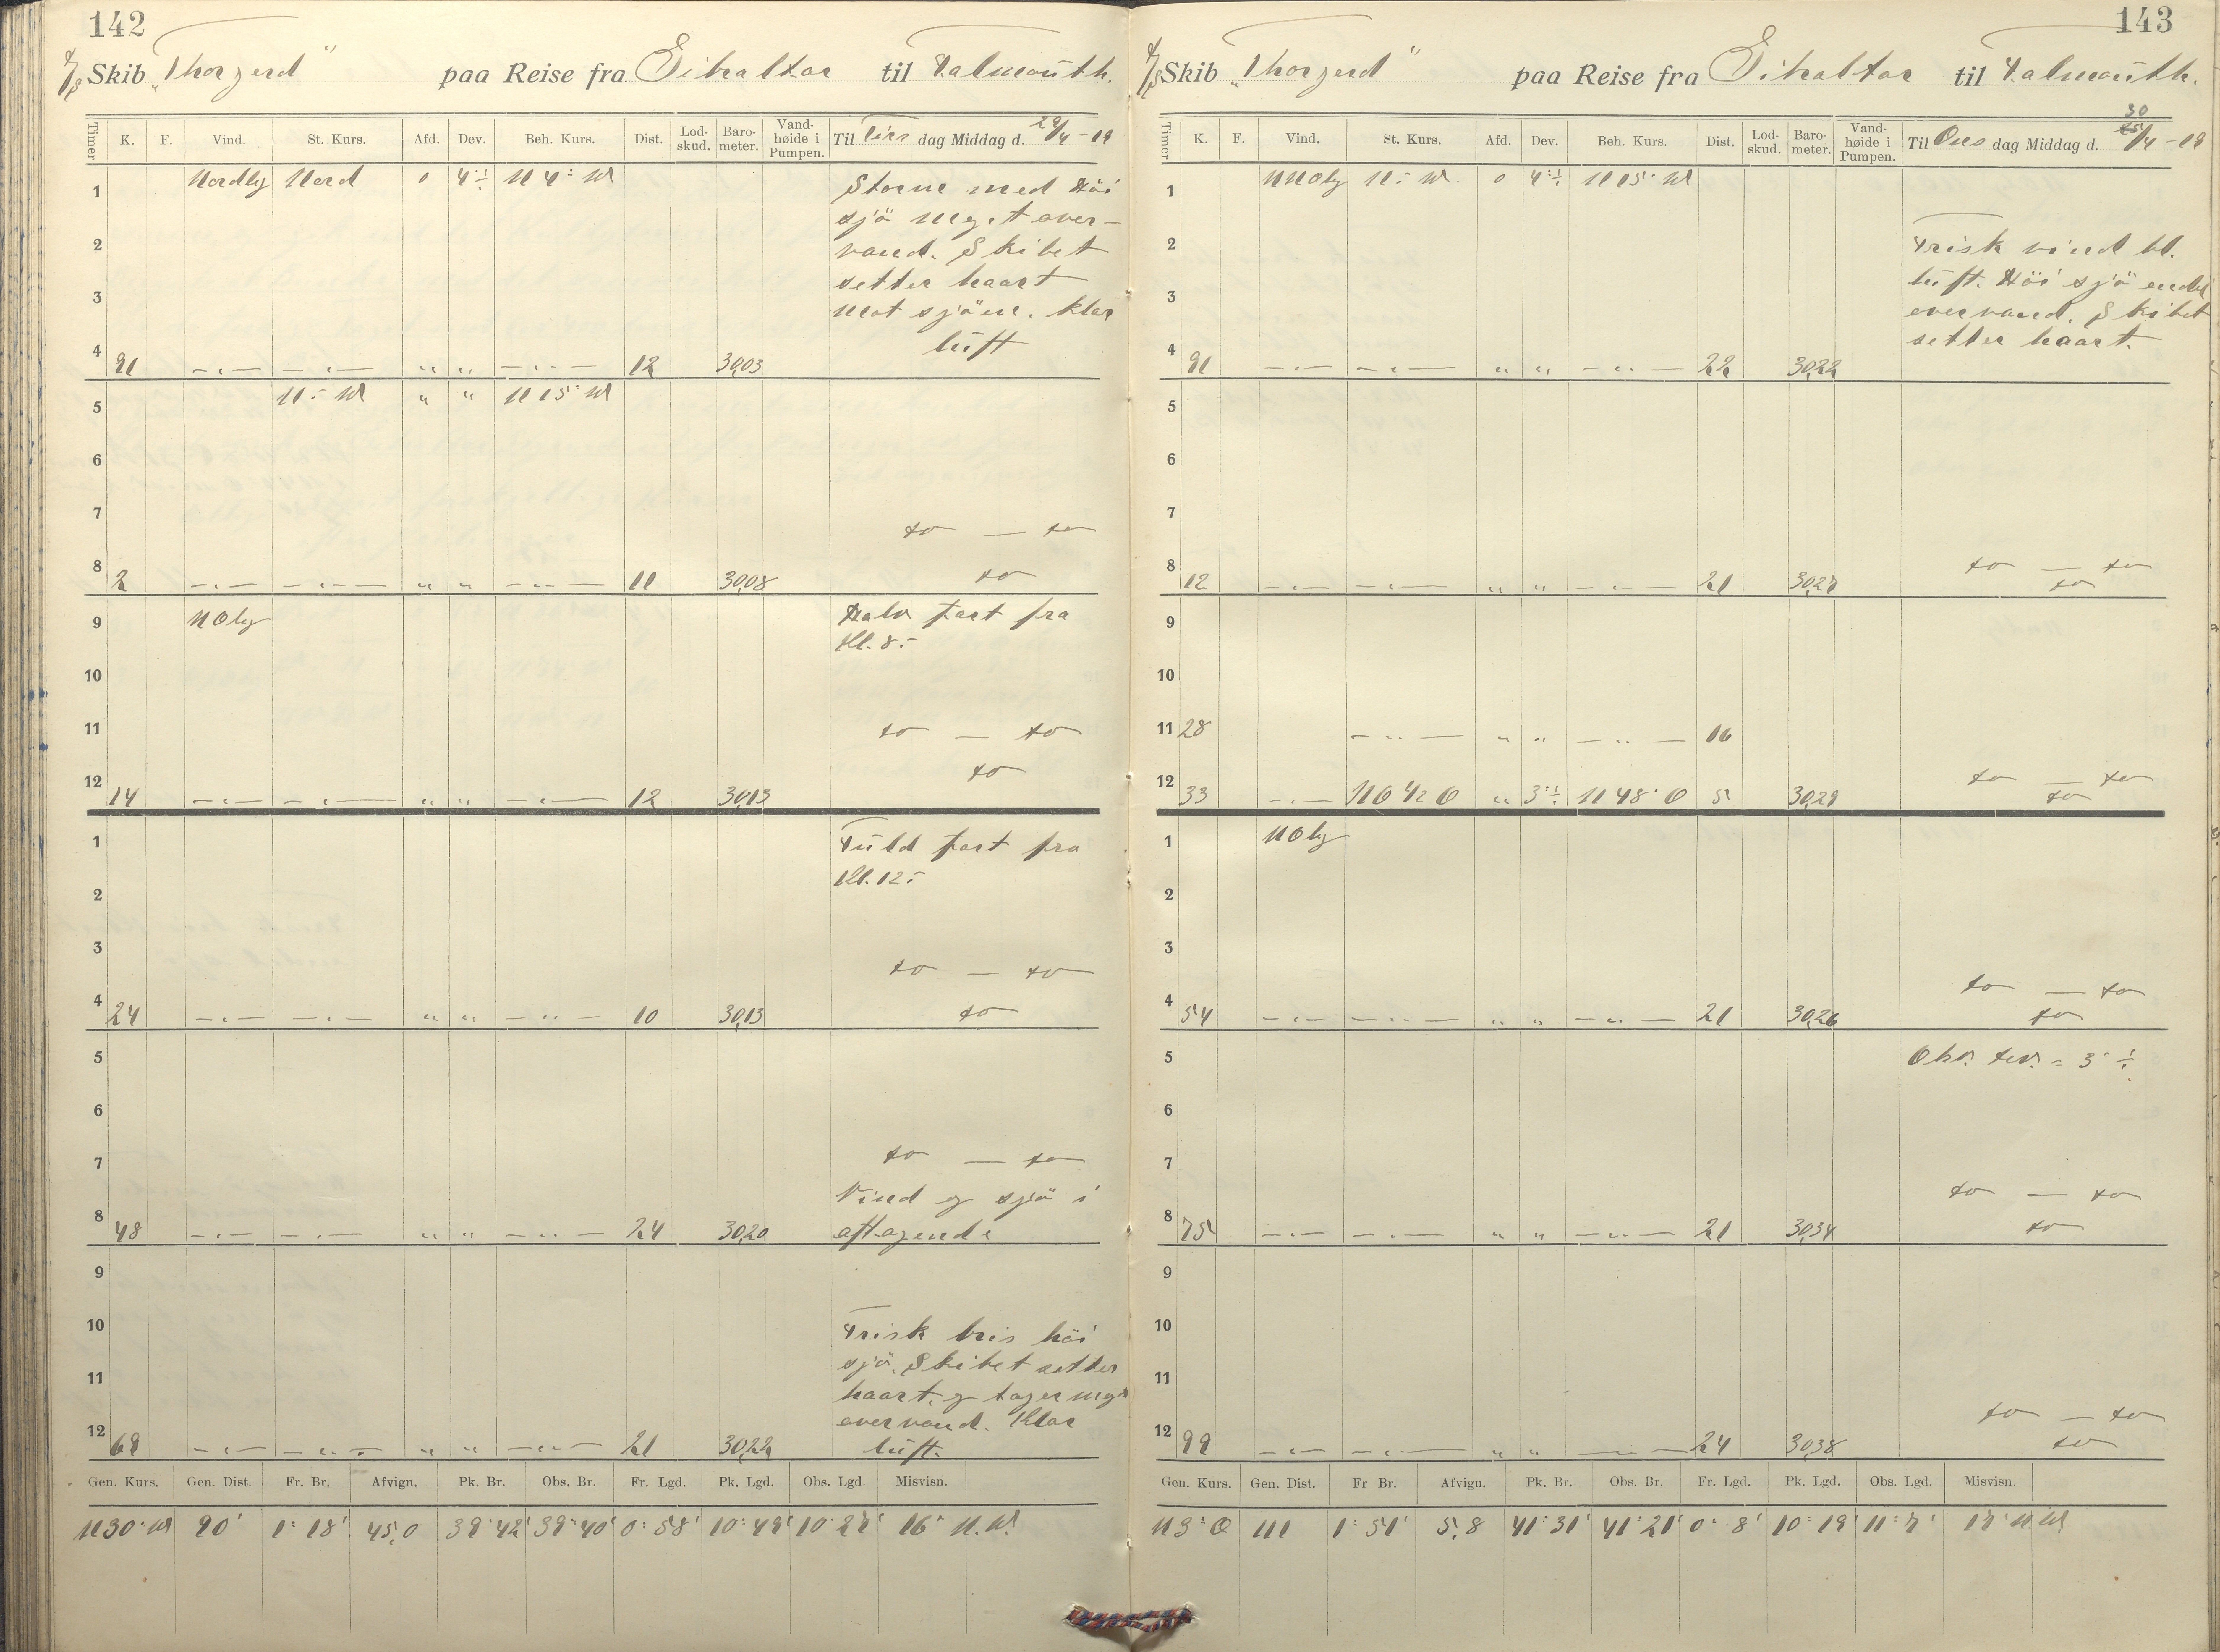 142
S/S Skib „Thorgerd” paa Reise fra Gibraltar til Falmouth.
Timer K. F. Vind. St. Kurs. Afd. Dev. Beh. Kurs. Dist. Lod-skud. Baro-meter. Vand-høide i Pumpen. Til Tirs dag Middag d. 29/4-19
1 Nordlig Nord 0 4°÷ N 4° W Storm med Høi
sjö meget over-
2 vand. Skibet
setter haart
3 mot sjöen. klar
luft
4 91 —„— —„— „ „ —„— 12 30,03
5 N÷W „ „ N 15° W
6
7 do — do
8 2 —„— —„— „ „ —„— 11 30,08 do
9 NOlig Halv fart fra
Kl. 8.-
10
11 do — do
do
12 14 —„— —„— „ „ —„— 12 30,13
1 Fuld fart fra
2 Kl. 12.-
3 do — do
4 24 —„— —„— „ „ —„— 10 30,13 do
5
6
7 do — do
Vind og sjö i
8 48 —„— —„— „ „ —„— 24 30,20 aftagende
9
10 Frisk bris höi
sjö. Skibet setter
11 haart, og tager meget
overvand. Klar
12 69 —„— —„— „ „ —„— 21 30,22 luft.
Gen. Kurs. Gen. Dist. Fr. Br. Afvign. Pk. Br. Obs. Br. Fr. Lgd. Pk. Lgd. Obs. Lgd. Misvisn.
N 30° W 90' 1° 18' 45,0 39° 42' 39° 40' 0° 58' 10° 49' 10° 27' 16° N.W.
143
S/S Skib „Thorgerd” paa Reise fra Gibraltar til Falmouth.
Timer K. F. Vind. St. Kurs. Afd. Dev. Beh. Kurs. Dist. Lod-skud. Baro-meter. Vand-høide i Pumpen. Til Ons dag Middag d. 30/4-19
1 NNOlig N÷W 0 4°÷ N 15° W
2 Frisk vind bl.
luft. Höi sjö endel
3 overvand. Skibet
setter haart.
4 91 —„— —„— „ „ —„— 22 30,22
5
6
7
8 12 —„— —„— „ „ —„— 21 30,27 do — do
do
9
10
11 28 —„— „ „ —„— 16
12 33 —„— NO 1/2 O „ 3°÷ N 48° O 5 30,29 do — do
do
1 NOlig
2
3
do — do
4 54 —„— —„— „ „ —„— 21 30,26 do
5 Obs. dev. = 3° ÷
6
7
do — do
8 75 —„— —„— „ „ —„— 21 30,34 do
9
10
11
do — do
12 99 —„— —„— „ „ —— 24 30,38 do
Gen. Kurs. Gen. Dist. Fr Br. Afvign. Pk. Br. Obs. Br. Fr. Lgd. Pk. Lgd. Obs. Lgd. Misvisn.
N 3° O 111 1° 51' 5,8 41° 31' 41° 21' 0° 8' 10° 19' 11° 7' 17° N.W.